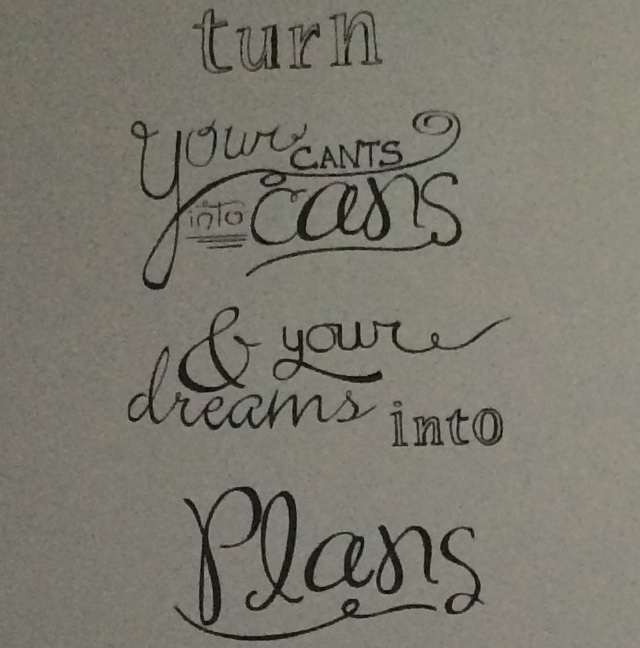 turn
your CANTS
into cans
& your
dreams into
Plans